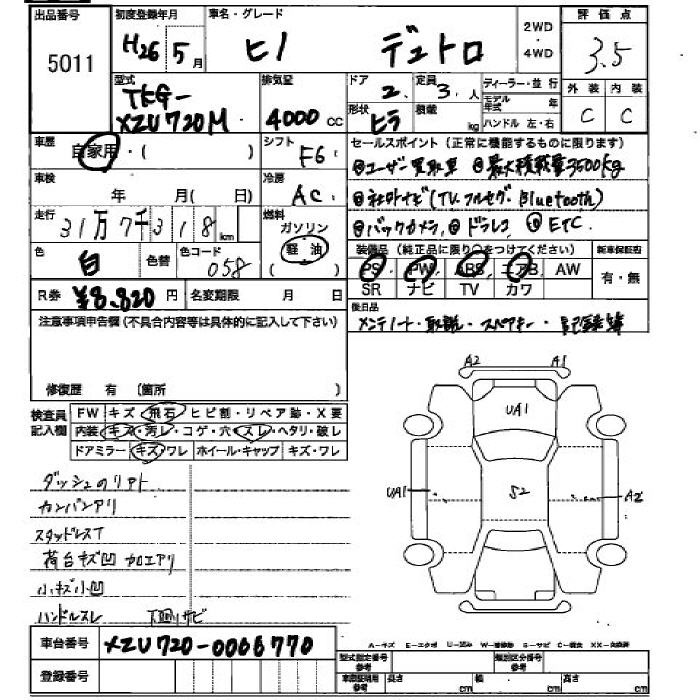 出品番号
5011
初度登録年月
H26 5月
車名・グレード
ヒノ デュトロ
2WD
・
4WD
評価点
3.5
外装 内装
C C
型式
TKG-
XZU720M
排気量
4000 cc
ドア
2
定員
3.人
形状
ヒラ
積載
kg
ディーラー・並行
モデル年式 年
ハンドル 左・右
車歴
自家用・( )
シフト
F6
車検
年 月( 日)
冷房
AC
走行
31万7千318km
燃料
ガソリン
軽油
( )
色
白
色替
色コード
058
R券 ¥8,820円
名変期限 月 日
セールスポイント(正常に機能するものに限ります)
@ユーザー買取車 @最大積載量3500kg
@社外ナビ(TV.フルセグ.Bluetooth)
@バックカメラ. @ドラレコ @ETC.
装備品(純正品に限り○をつけてください)
PS PW ABS エアB AW
SR ナビ TV カワ
新車保証書
有・無
後日品
メンテノート・取説・スペアキー・記録簿
注意事項申告欄(不具合内容等は具体的に記入して下さい)
修復歴 有 (箇所 )
検査員記入欄
FW キズ・飛石・ヒビ割・リペア跡・X要
内装・キズ・汚レ・コゲ・穴・スレ・ヘタリ・破レ
ドアミラー キズ・ワレ ホイール・キャップ キズ・ワレ
ダッシュのリアト
カンバンアリ
スタッドレスT
荷台キズ凹 加工アリ
小キズ小凹
ハンドルスレ 下廻リサビ
A2 A1
UA1
UA1 S2 A2
A-キズ E-エクボ U-凹み W-補修跡 S-サビ C-腐食 XX-交換済
車台番号 XZU720-0006770
登録番号
型式指定番号 参考
類別区分番号 参考
車庫証明用 参考
長さ cm
幅 cm
高さ cm